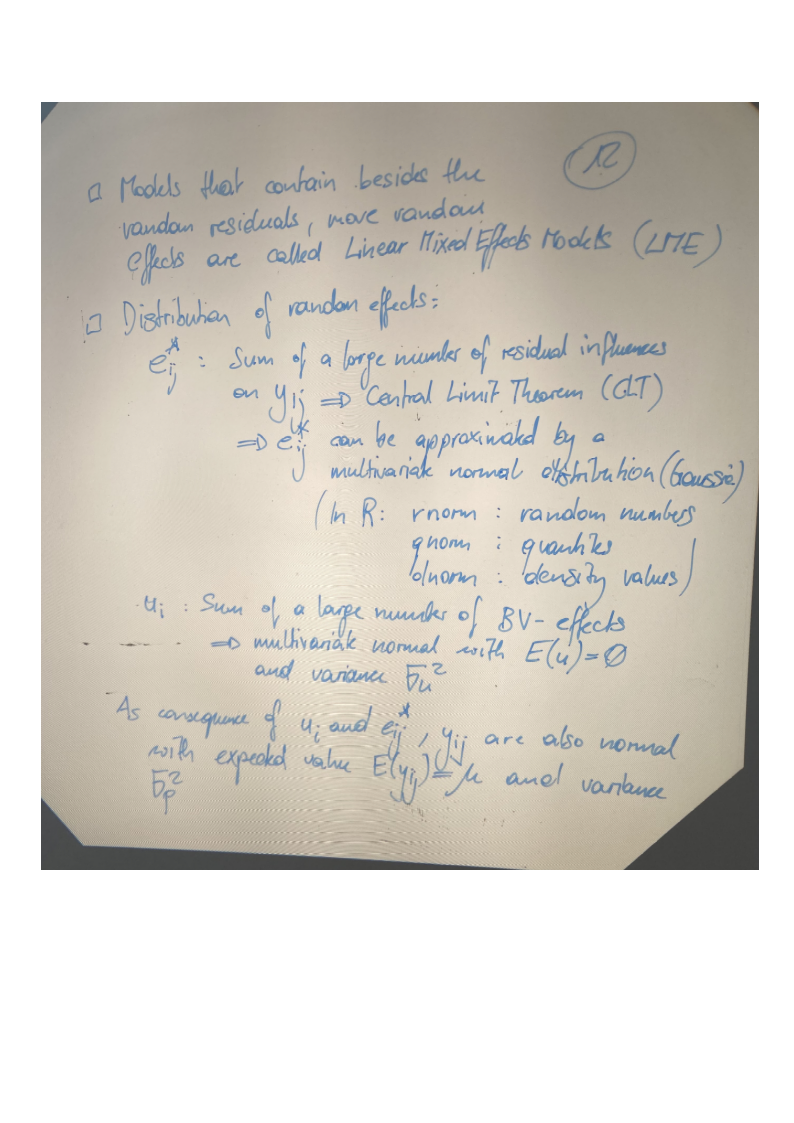 12
□ Models that contain besides the
random residuals, more random
effects are called Linear Mixed Effects Models (LME)
□ Distribution of random effects:
e*ij : Sum of a large number of residual influences
on yij ⇒ Central Limit Theorem (CLT)
⇒ e*ij can be approximated by a
multivariate normal distribution (Gaussia)
(In R: rnorm : random numbers
qnorm : quantiles
dnorm : density values)
ui : Sum of a large number of BV-effects
⇒ multivariate normal with E(u)=∅
and variance σu²
As consequence of ui and e*ij, yij are also normal
with expected value E(yij)=μ and variance
σp²